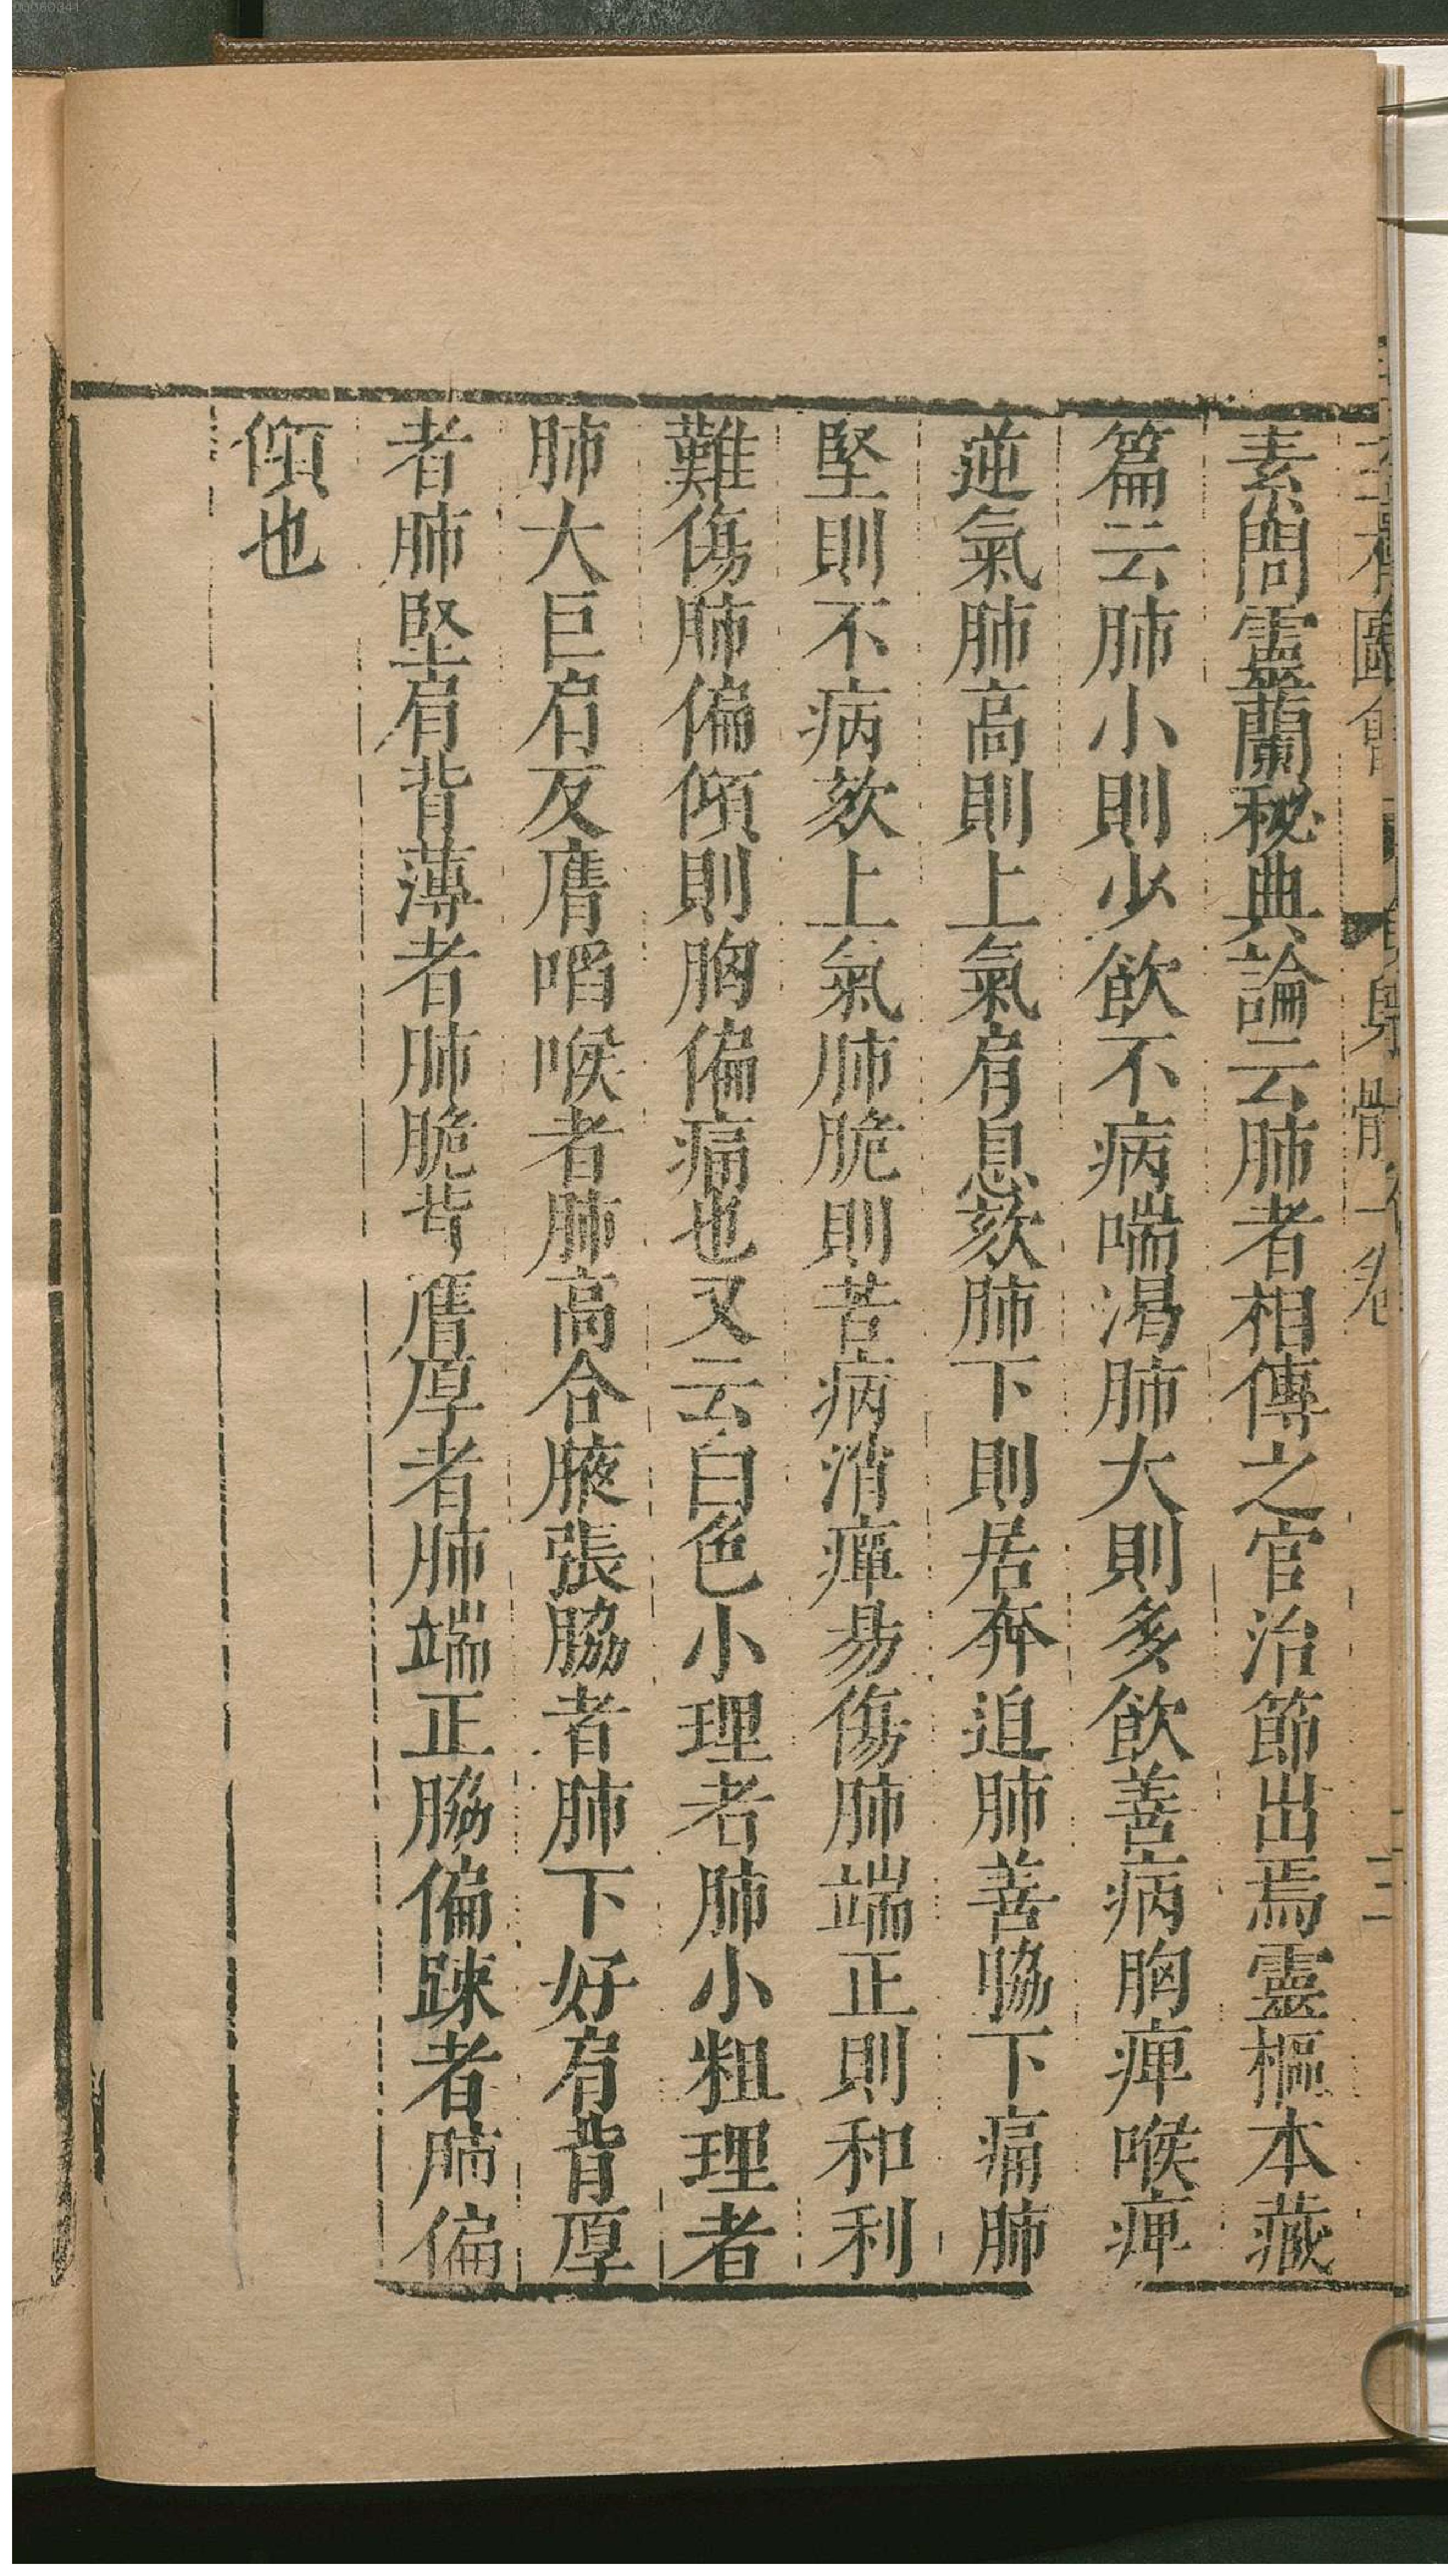 圖會
身體一卷
三
素問靈蘭秘典論云肺者相傳之官治節出焉靈樞本藏
篇云肺小則少飲不病喘渴肺大則多飲善病胸痺喉痺
逆氣肺高則上氣肩息欬肺下則居奔迫肺善脇下痛肺
堅則不病欬上氣肺脆則苦病消癉易傷肺端正則和利
難傷肺偏傾則胸偏痛也又云白色小理者肺小粗理者
肺大巨肩反膺啗喉者肺高合腋張脇者肺下好肩背厚
者肺堅肩背薄者肺脆背膺厚者肺端正脇偏踈者肺偏
傾也
00080341